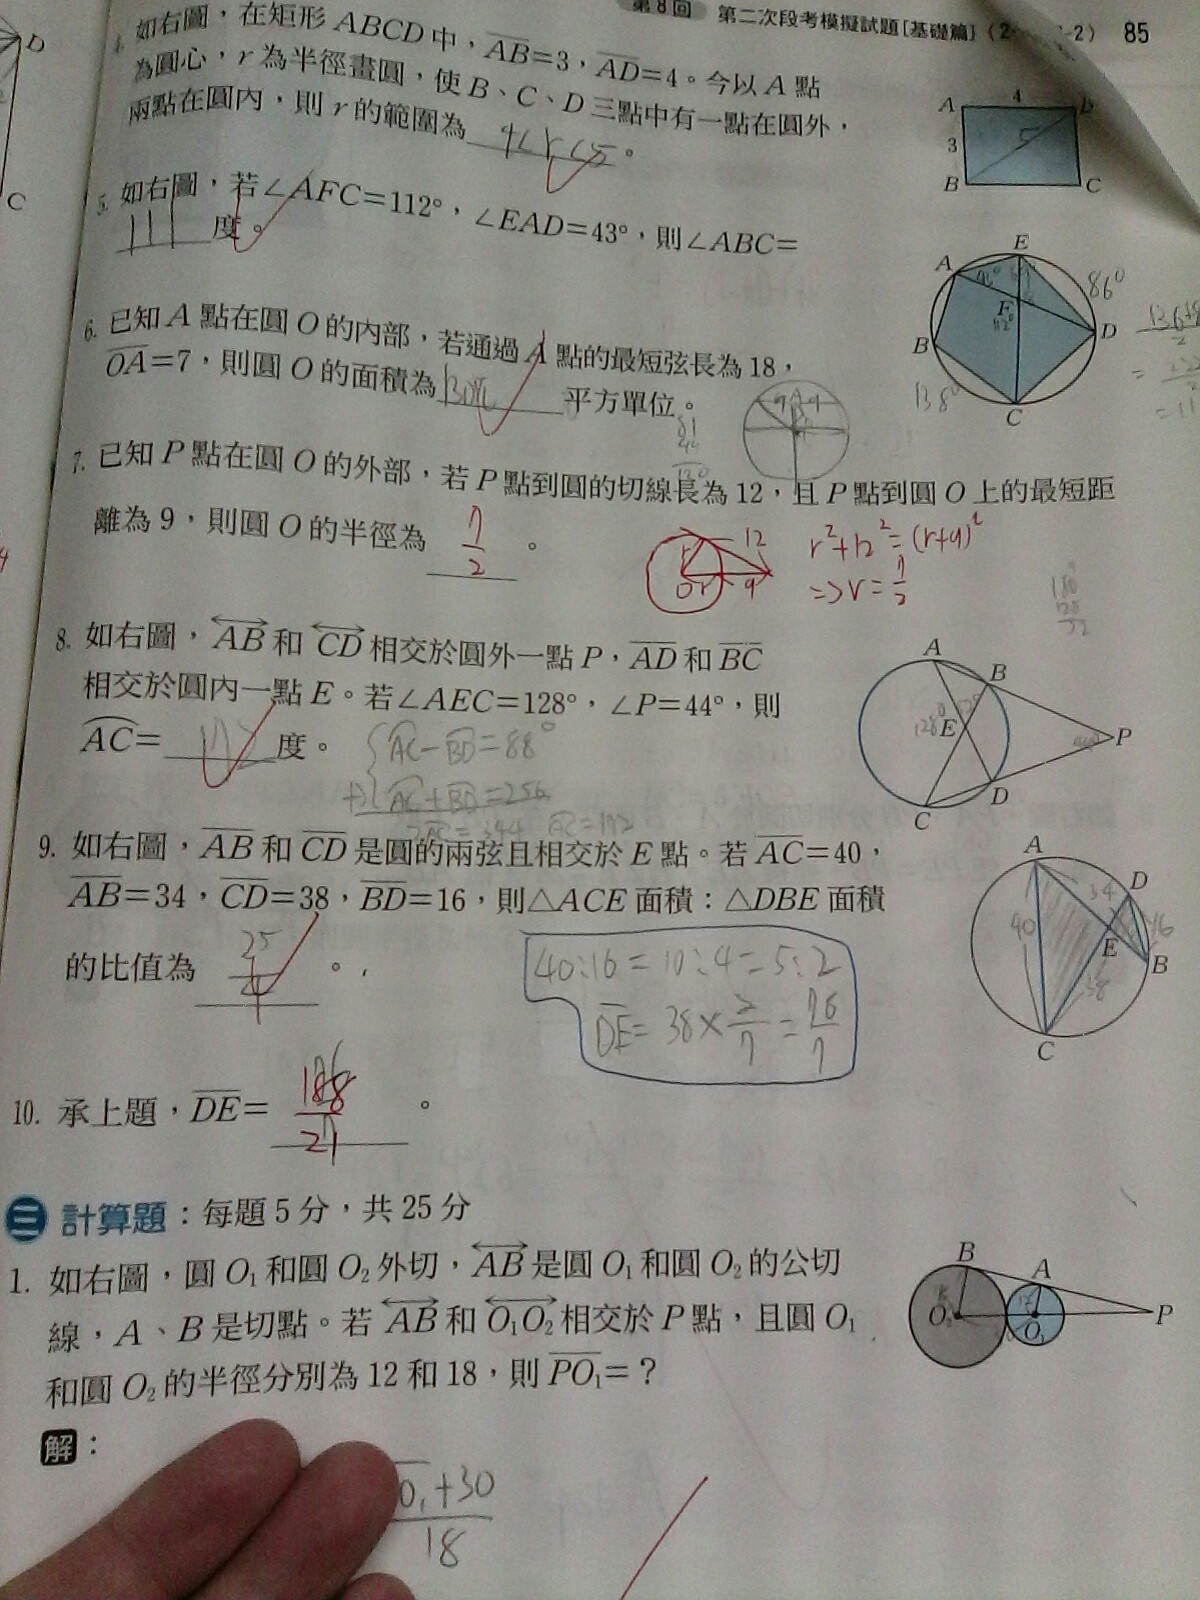 第8回 第二次段考模擬試題[基礎篇] 85
4. 如右圖，在矩形ABCD中，AB=3，AD=4。今以A點
為圓心，r為半徑畫圓，使B、C、D三點中有一點在圓外，
兩點在圓內，則r的範圍為 4<r<5 。
A 4 D
3 5
B C
5. 如右圖，若∠AFC=112°，∠EAD=43°，則∠ABC=
111 度。
E
A 86°
F
B D
138° C
6. 已知A點在圓O的內部，若通過A點的最短弦長為18，
OA=7，則圓O的面積為 130π 平方單位。
7. 已知P點在圓O的外部，若P點到圓的切線長為12，且P點到圓O上的最短距
離為9，則圓O的半徑為 7/2 。
r 12
O r 9
r²+12²=(r+9)²
=>r=7/2
8. 如右圖，AB和CD相交於圓外一點P，AD和BC
相交於圓內一點E。若∠AEC=128°，∠P=44°，則
AC= 172 度。
AC-BD=88°
+ AC+BD=256
2AC=344 AC=172
A B
128° E P
C D
9. 如右圖，AB和CD是圓的兩弦且相交於E點。若AC=40，
AB=34，CD=38，BD=16，則△ACE面積：△DBE面積
的比值為 25/4 。
40:16=10:4=5:2
DE=38×2/7=76/7
A D
34
40 E 16
38 B
C
10. 承上題，DE= 。
三 計算題：每題5分，共25分
1. 如右圖，圓O₁和圓O₂外切，AB是圓O₁和圓O₂的公切
線，A、B是切點。若AB和O₁O₂相交於P點，且圓O₁
和圓O₂的半徑分別為12和18，則PO₁=？
B A
O₁ P
解：
O₁+30
18
D
C